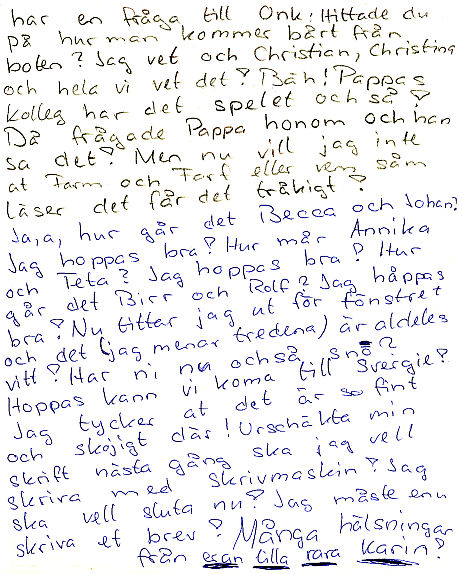 har en fråga till Onk: Hittade du
på hur man kommer bårt från
boten? Jag vet och Christian, Christina
och hela vi vet det? Bäh! Pappas
kolleg har det spelet och så?
Då frågade Pappa honom och han
sa det? Men nu vill jag inte
at Farm och Farf eller vem såm
läser det får det tråkigt?
Ja,a, hur går det Becca och Johan?
Jag hoppas bra? Hur mår Annika
och Teta? Jag hoppas bra? Hur
går det Birr och Rolf? Jag håppas
bra? Nu tittar jag ut för fönstret
och det (jag menar tredena) är aldeles
vitt? Har ni nu ochså snö?
Hoppas kann vi koma till Svergie?
Jag tycker at det är so fint
och skojigt där! Urschäkta min
skrift nästa gång ska jag vell
skriva med skrivmaskin? Jag
ska vell sluta nu? Jag måste enu
skriva et brev? Många hälsningar
från eran lilla rara Karin?